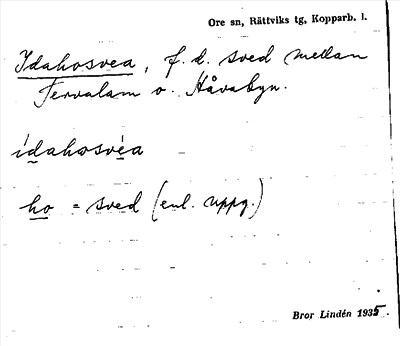 Ore sn, Rättviks tg, Kopparb. l.
Idahosvea, f. d. sved mellan
Tervalam o. Håvabyn.
ídahosvéa
ho = sved (enl. uppg.)
Bror Lindén 1935.